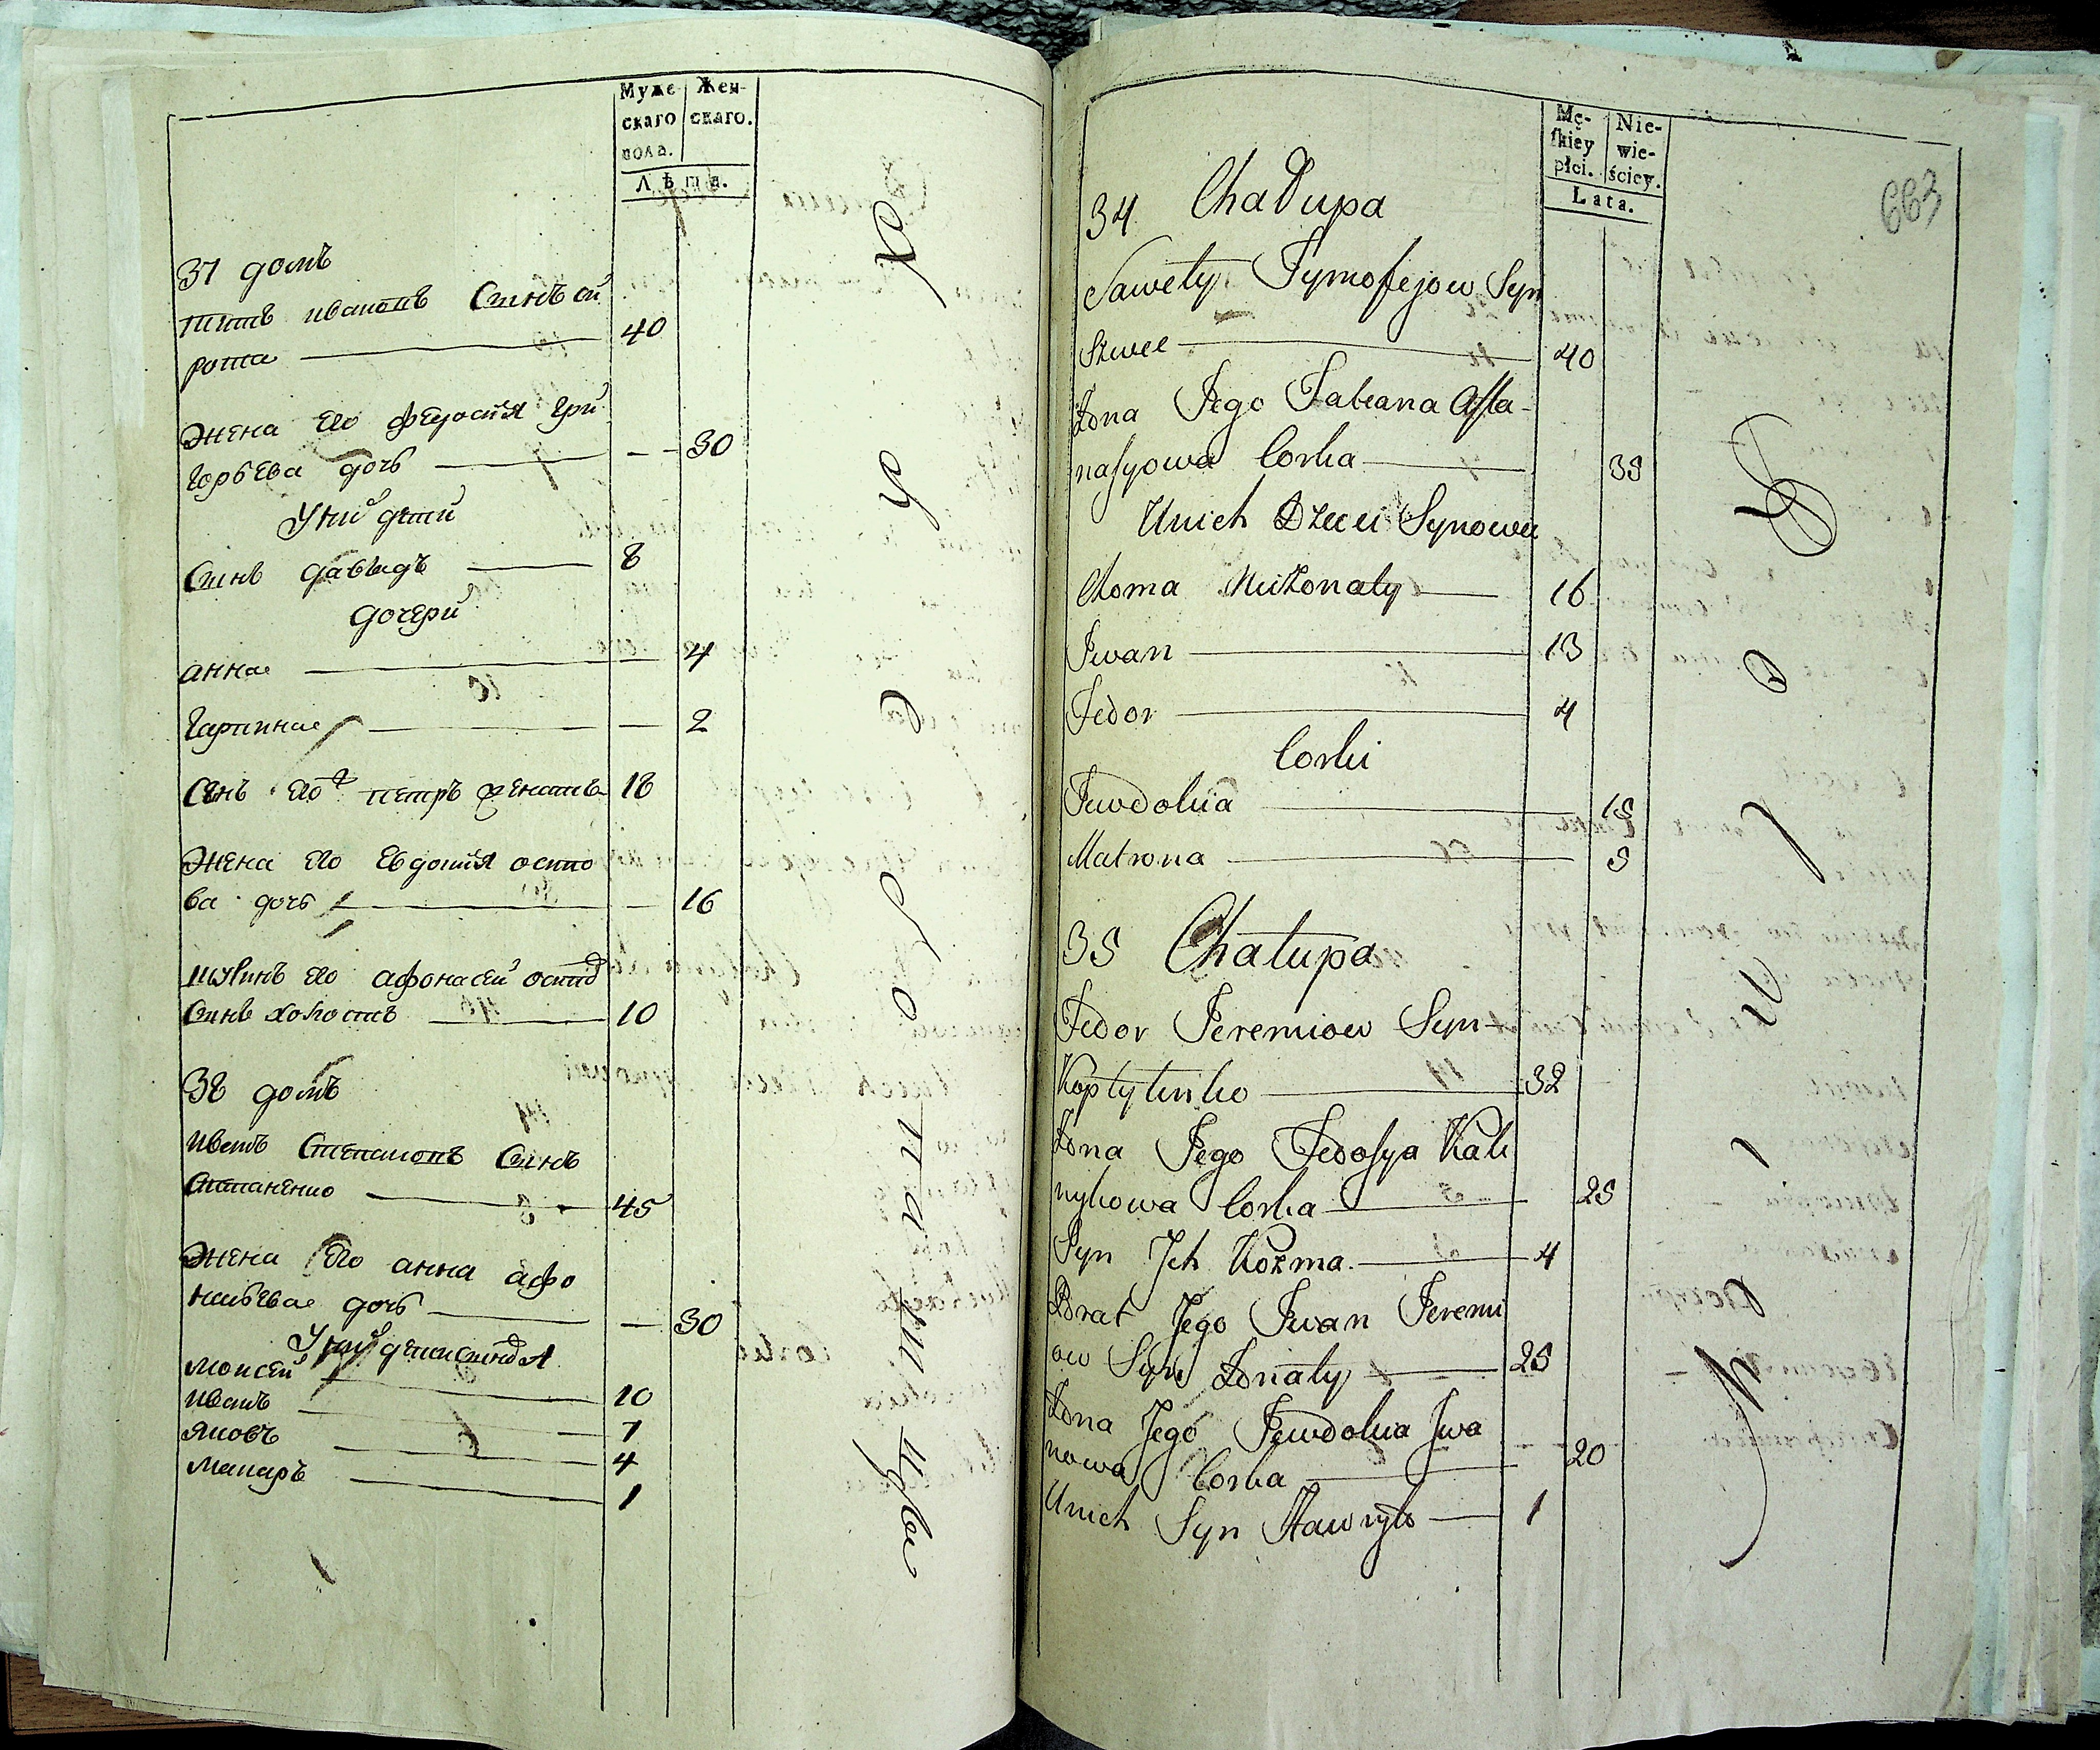 Муже-
скаго
пола.
Жен-
скаго.
Лѣта.
37 домъ
титъ ивановъ Синъ си
рота 40
Жена его федосия гри
горьева дочь 30
У ни дети
Синъ давыдъ 8
дочери
анна 4
гарпина 2
Синъ его петръ женатъ 18
Жена его Евдокия
ва дочь 16
шуринъ его афонасей
Синъ холостъ 10
38 домъ
иванъ Степановъ Синъ
Степаненко 45
Жена его анна афо
насьева дочь 30
У ни дети
моисей 10
иванъ 7
яковъ 4
макаръ 1
663
Mę-
ſkiey
płci.
Nie-
wie-
ściey.
Lata.
34 Chałupa
Sawety Tymofejow Syn
Szwec 40
Żona Jego Tateana Affa-
nasyowa Corka 35
Unich Dzeci Synowie
Choma Nieżonaty 16
Iwan 13
Fedor 4
Corki
Jewdokia 15
Matrona 5
35 Chatupa
Fedor Jeremiow Syn
Koptytenko 32
Żona Jego Fedosya Kali
nykowa Corka 25
Syn Ich Kozma 4
Brat Jego Iwan Jeremi
ow Syn Żonaty 25
Żona Jego Jewdokia Iwa
nowa Corka 20
Unich Syn Hawryło 1